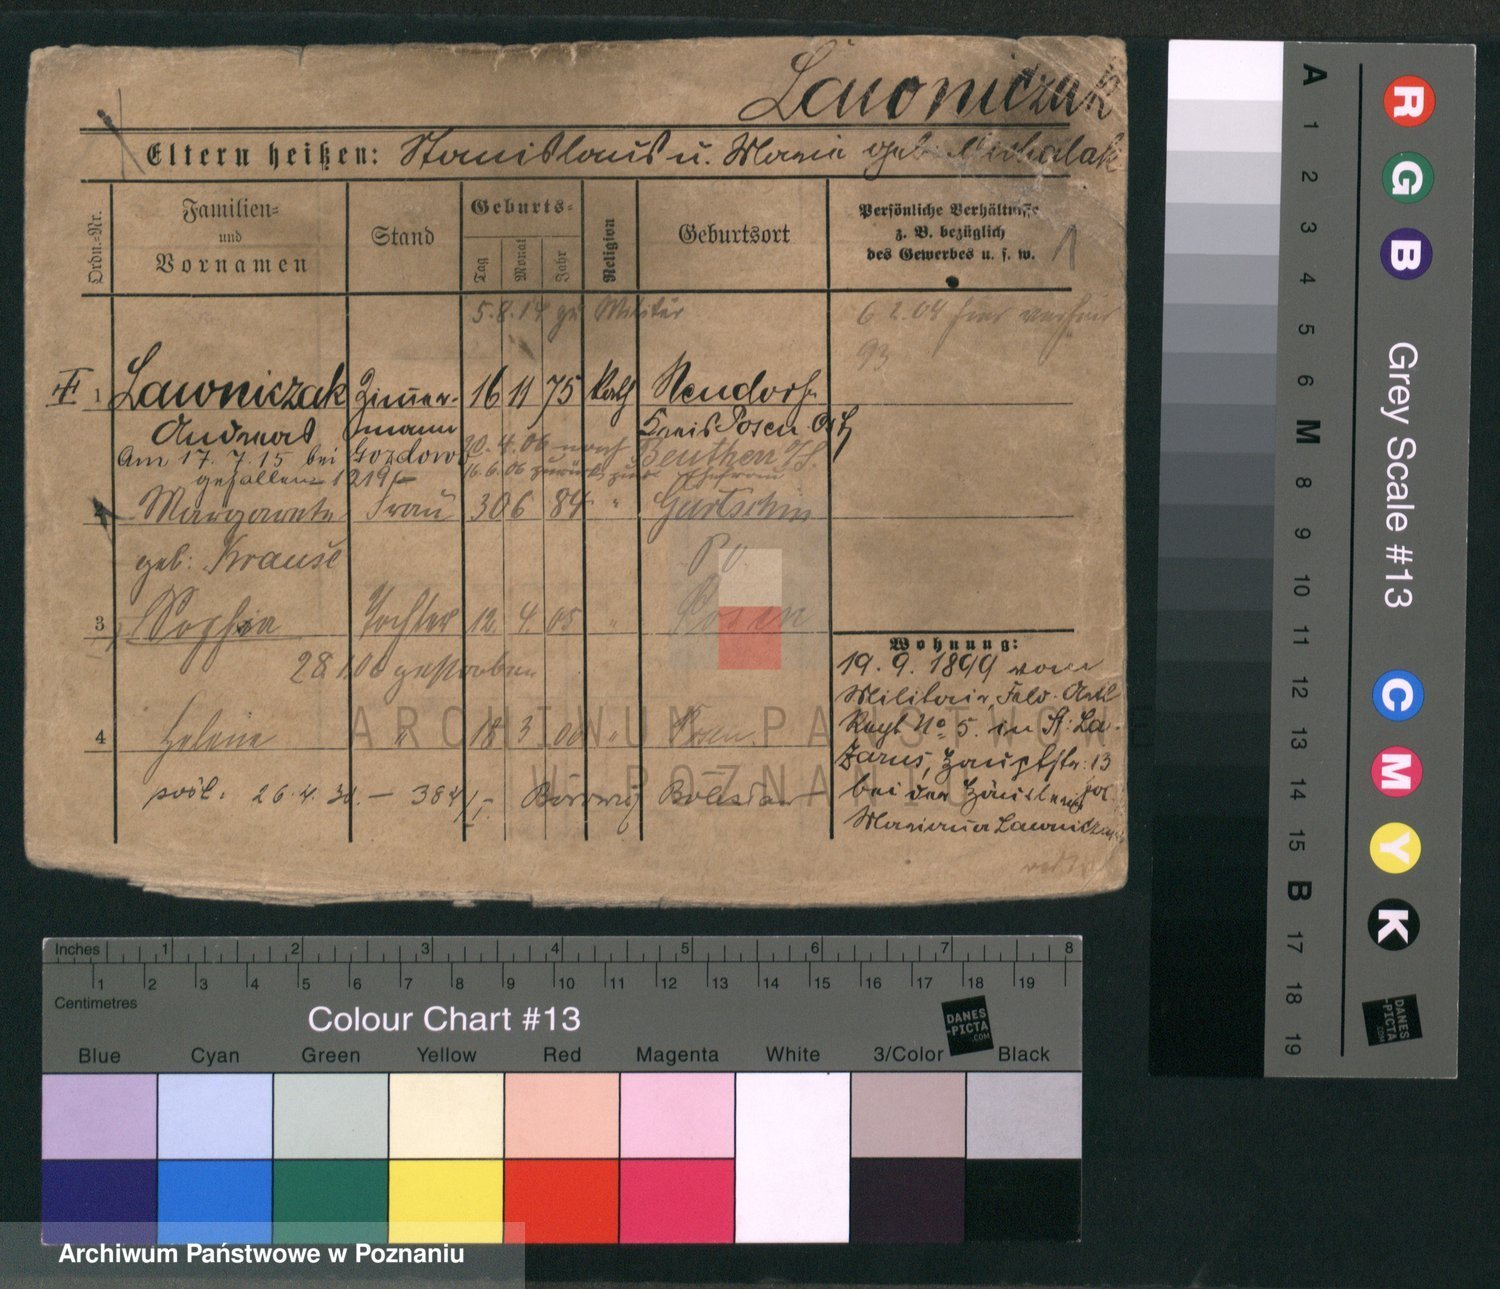 Ławoniczak
Eltern heißen: Stanislaus u. Maria geb. Michalak
Ordn.=Nr.
Familien=
und
Vornamen
Stand
Geburts=
Tag
Monat
Jahr
Religion
Geburtsort
Persönliche Verhältnisse
z. B. bezüglich
des Gewerbes u. s. w.
1
5.8.14 zu Militär
6 2.04 hier
93
1 Lawniczak Zimmer- 16 11 75 Kath Neudorf
Andreas mann Kreis Posen Ost
Am 17. 7. 15 bei Gozdow 20.4.06 nach Beuthen O/S.
gefallen 1219/- 16.6.06 zurück zur Ehefrau
2 Margarete Frau 30 6 84 " Gurtschin
geb. Krause Po.
3 Sophia Tochter 12. 4. 05 " Posen
28 1.06 gestorben
4 Helene " 18 3 00 " Posen
26.4.30. — 384/-
Wohnung:
19. 9. 1899 vom
Militair, Feld. Artl
Regt No. 5. in St. La-
zarus, Hauptstr. 13
bei der Häuslerin
Mariana Lawniczak
ARCHIWUM PAŃSTWOWE
W POZNANIU
Inches 1 2 3 4 5 6 7 8
1 2 3 4 5 6 7 8 9 10 11 12 13 14 15 16 17 18 19
Centimetres
Colour Chart #13
DANES
-PICTA
.COM
Blue Cyan Green Yellow Red Magenta White 3/Color Black
Archiwum Państwowe w Poznaniu
A 1 2 3 4 5 6 M 8 9 10 11 12 13 14 15 B 17 18 19
R G B
Grey Scale #13
C M Y K
DANES
-PICTA
.COM